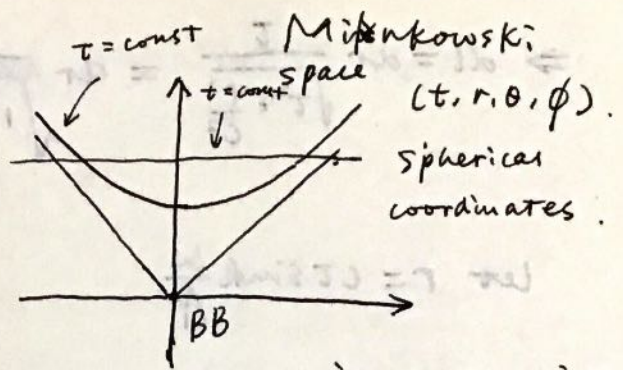 τ = const
Minkowski
space
t = const
(t, r, θ, ϕ).
spherical
coordinates.
BB